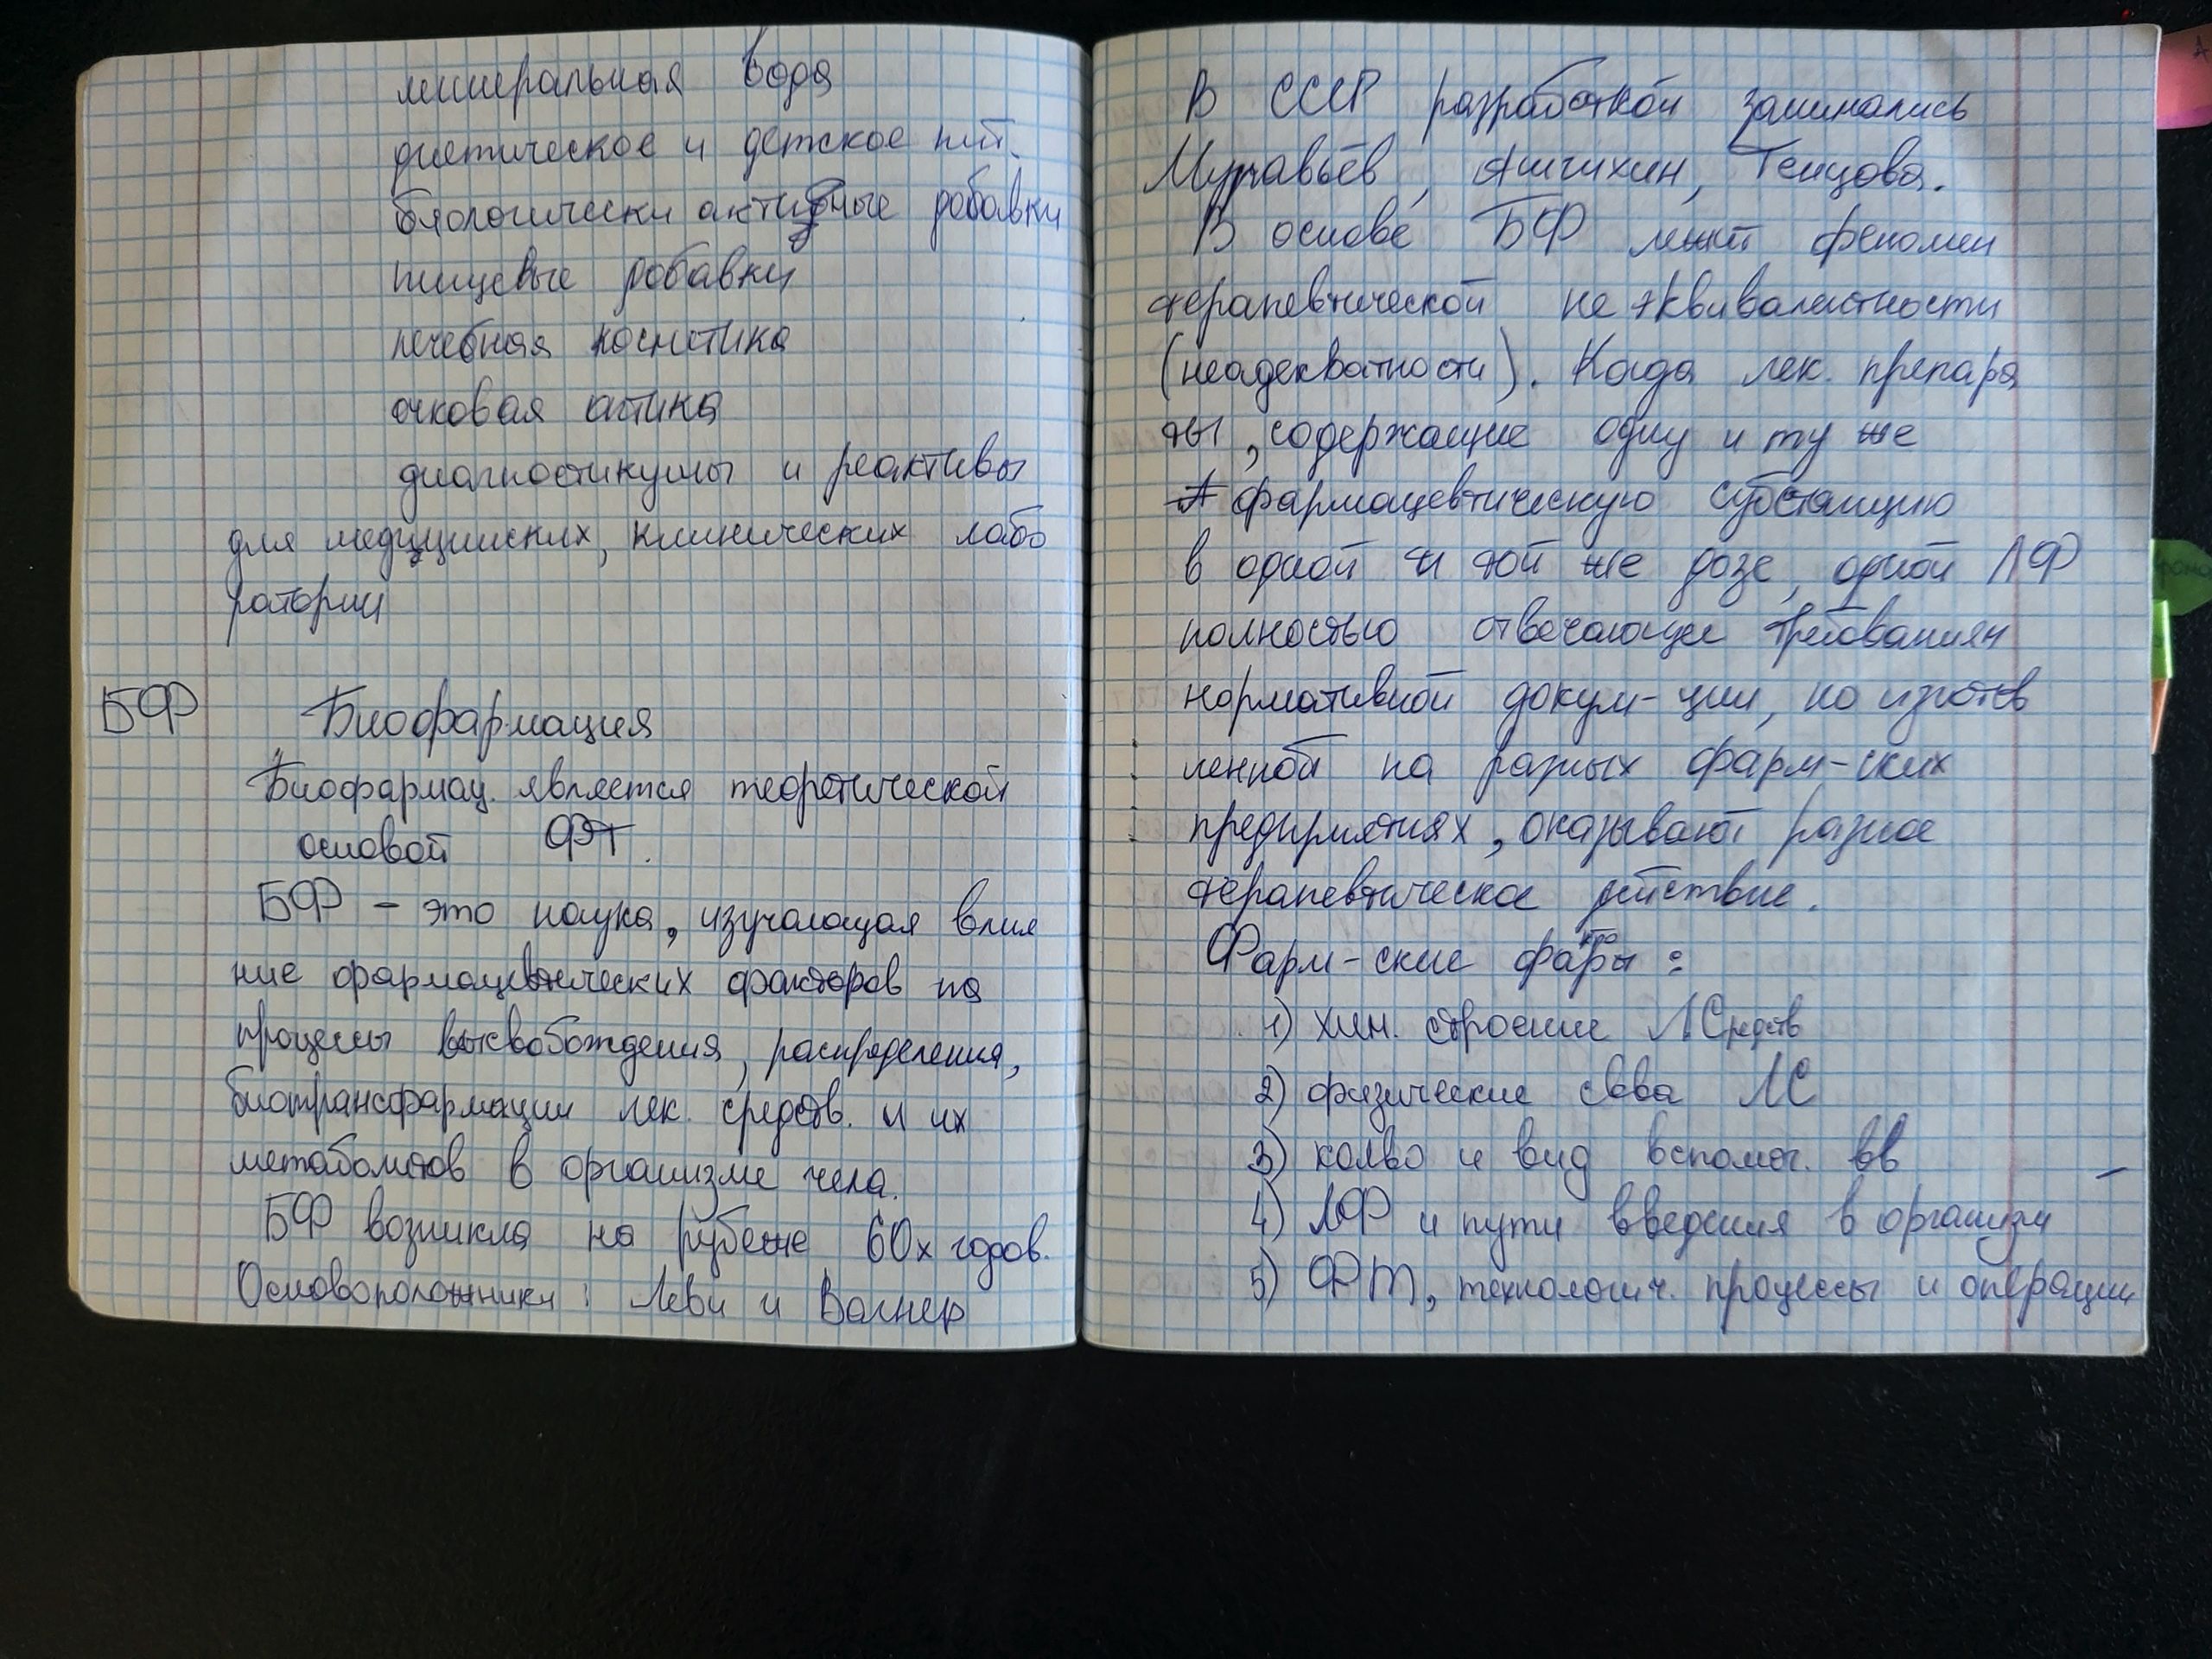 минеральная вода
диетическое и детское пит.
биологически активные добавки
пищевые добавки
лечебная косметика
очковая оптика
диагностикумы и реактивы
для медицинских, клинических лабо
ратории
БФ Биофармация
Биофармац. является теоретической
основой ФТ.
БФ – это наука, изучающая влия
ние фармацевтических факторов на
процессы высвобождения, распределения,
биотрансформации лек. средств. и их
метаболитов в организме чела.
БФ возникла на рубеже 60х годов.
Основоположники: Леви и Вагнер
В СССР разработкой занимались
Муравьёв, Тенцова.
В основе БФ лежит феномен
терапевтической не эквивалентности
(неадекватности). Когда лек. препара
ты, содержащие одну и ту же
фармацевтическую субстанцию
в одной и той же дозе, одной ЛФ
полностью отвечающие требованиям
нормативной докум-ции, но изготов
ленной на разных фарм-ских
предприятиях, оказывают разное
терапевтическое действие.
Фарм-ские факторы:
1) хим. строение ЛСредств
2) физические свва ЛС
3) колво и вид вспомог. вв
4) ЛФ и пути введения в организм
5) ФТ, технологич. процессы и операции